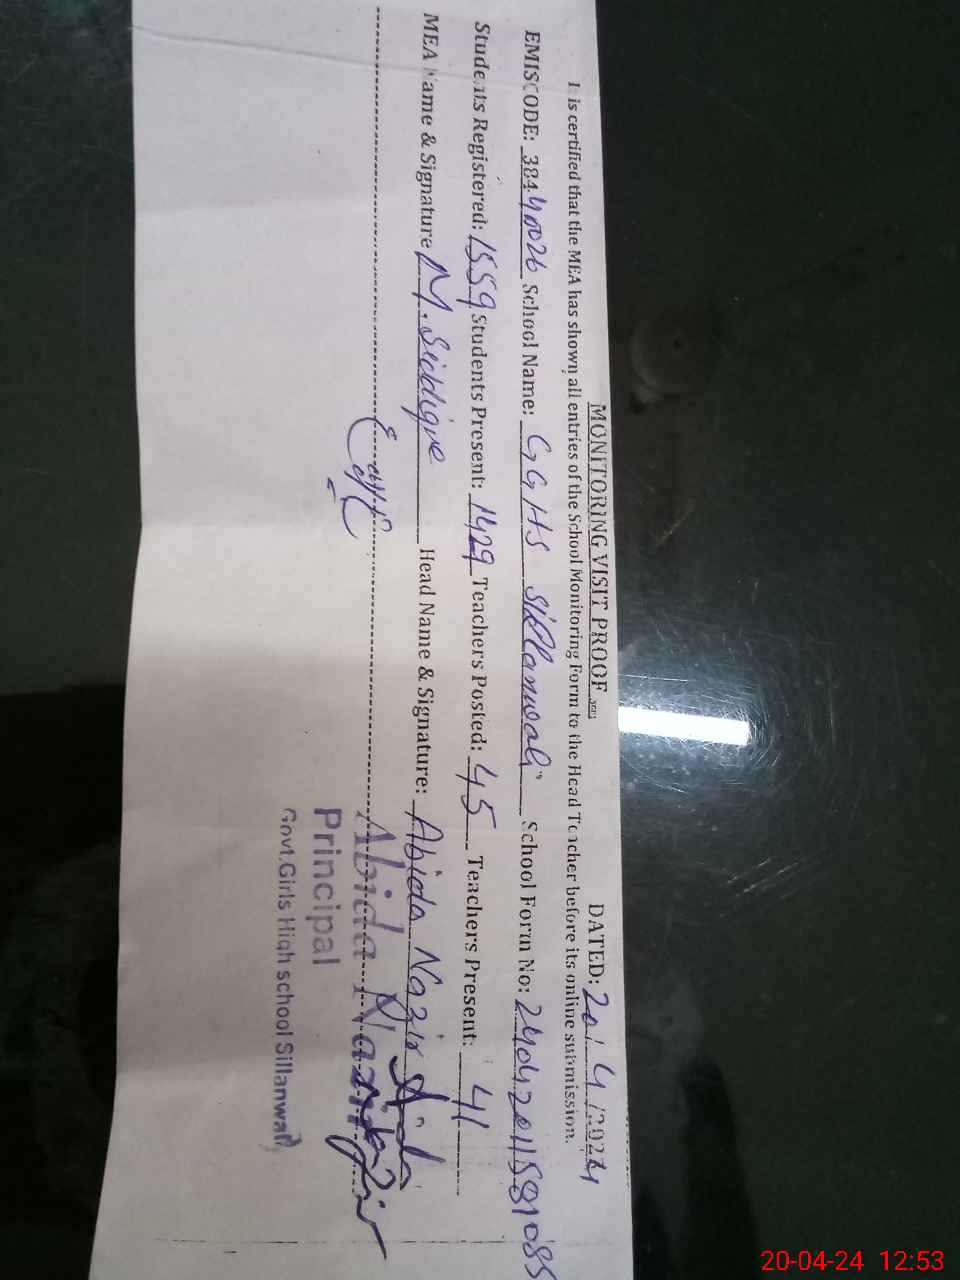 MONITORING VISIT PROOF DATED: 20/4/2024
It is certified that the MEA has shown all entries of the School Monitoring Form to the Head Teacher before its online submission.
EMISCODE: 38440026 School Name: GGHS Sillanwali School Form No: 24042011581085
Students Registered: 1559 Students Present: 1429 Teachers Posted: 45 Teachers Present: 41
MEA Name & Signature M. Siddique Head Name & Signature: Abida Nazir
Abida Nazir
Principal
Govt.Girls High school Sillanwali
20-04-24 12:53